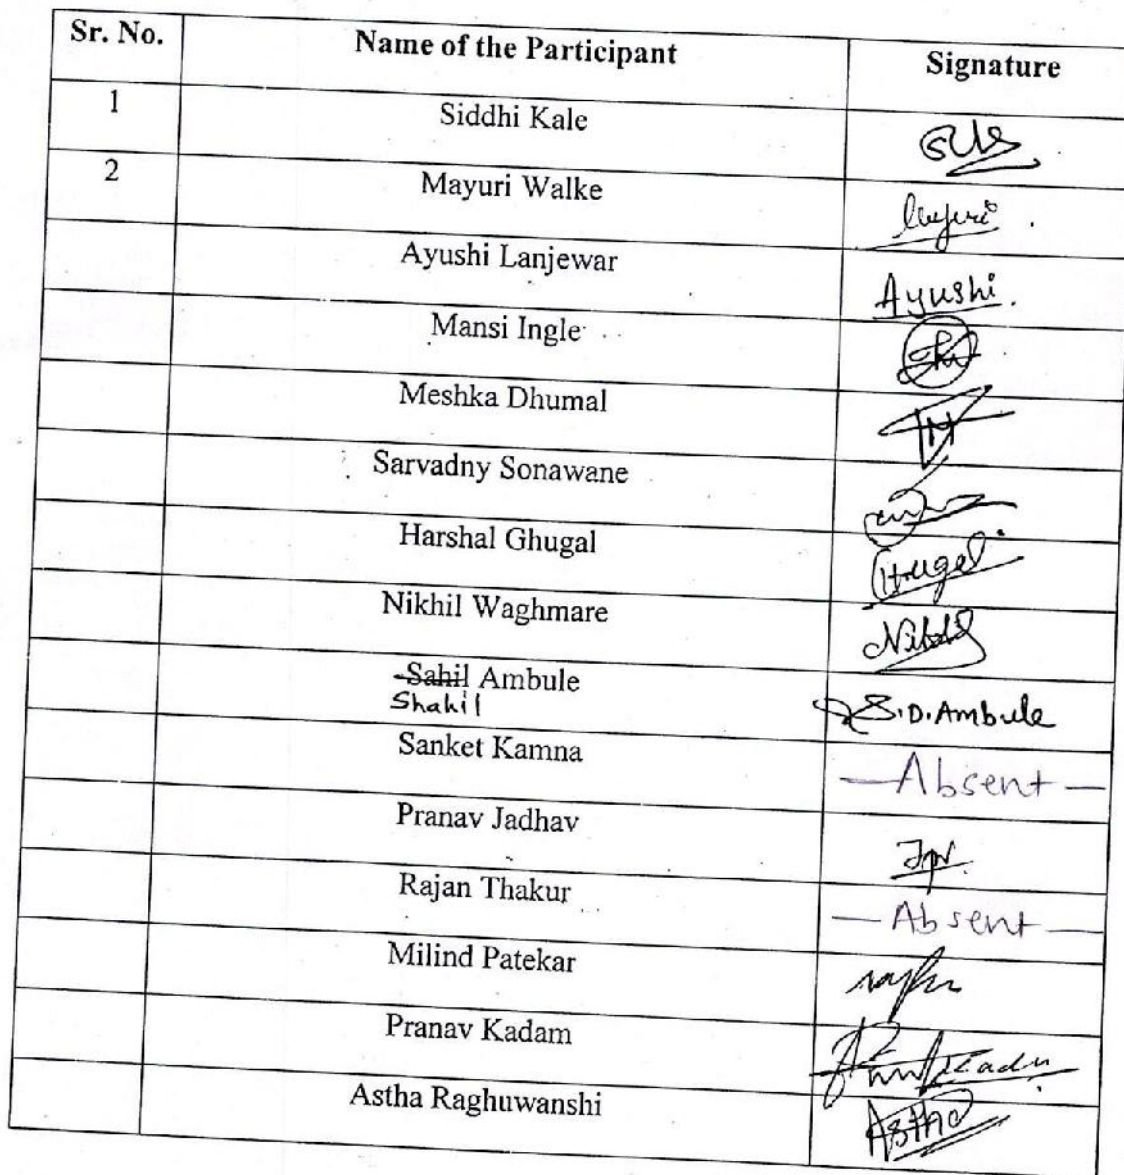 Sr. No. Name of the Participant Signature
1 Siddhi Kale
2 Mayuri Walke
Ayushi Lanjewar Ayushi.
Mansi Ingle
Meshka Dhumal
Sarvadny Sonawane
Harshal Ghugal
Nikhil Waghmare
Sahil Ambule S.D.Ambule
Shahil
Sanket Kamna —Absent—
Pranav Jadhav
Rajan Thakur —Absent—
Milind Patekar
Pranav Kadam
Astha Raghuwanshi Astha